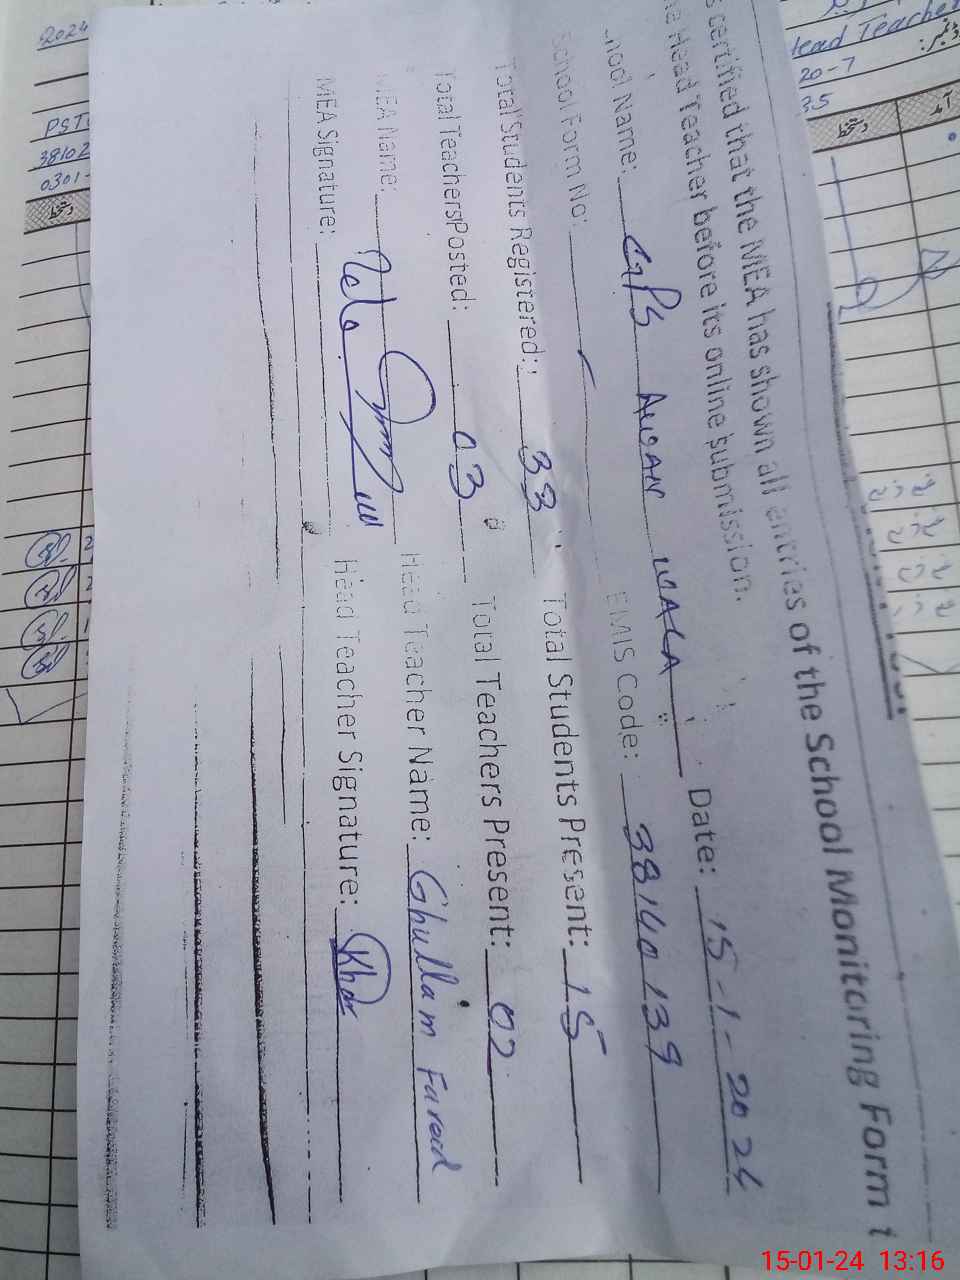 of the School Monitoring Form t
s certified that the MEA has shown all entries
he Head Teacher before its online submission.
Date: 15-1-2024
hool Name: GPS AWAN WALA
EMIS Code: 38140139
School Form No:
Total Students Registered: 38
Total Students Present: 15
Total Teachers Posted: 03
Total Teachers Present: 02
MEA Name:
Head Teacher Name: Ghullam Fareed
MEA Signature:
Head Teacher Signature:
2024
PST
38102
0301-
Head Teacher
20-7
35
15-01-24 13:16